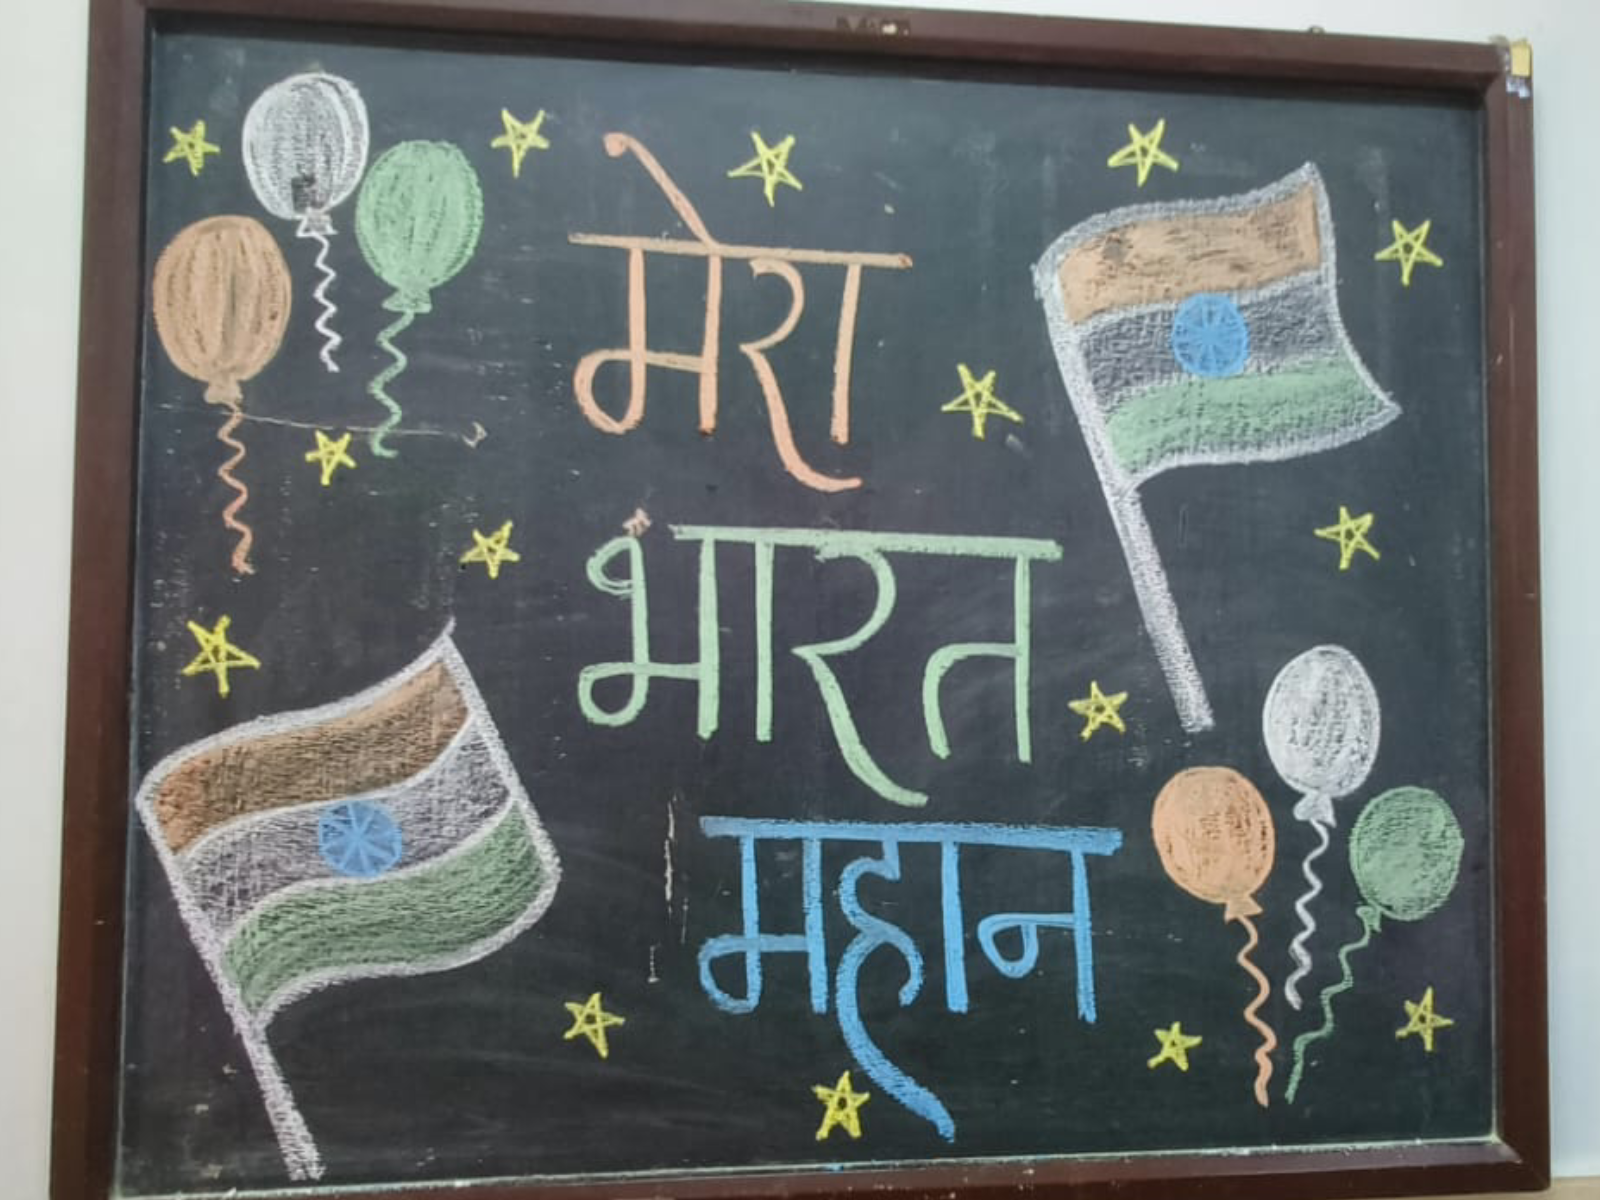 मेरा
भारत
महान